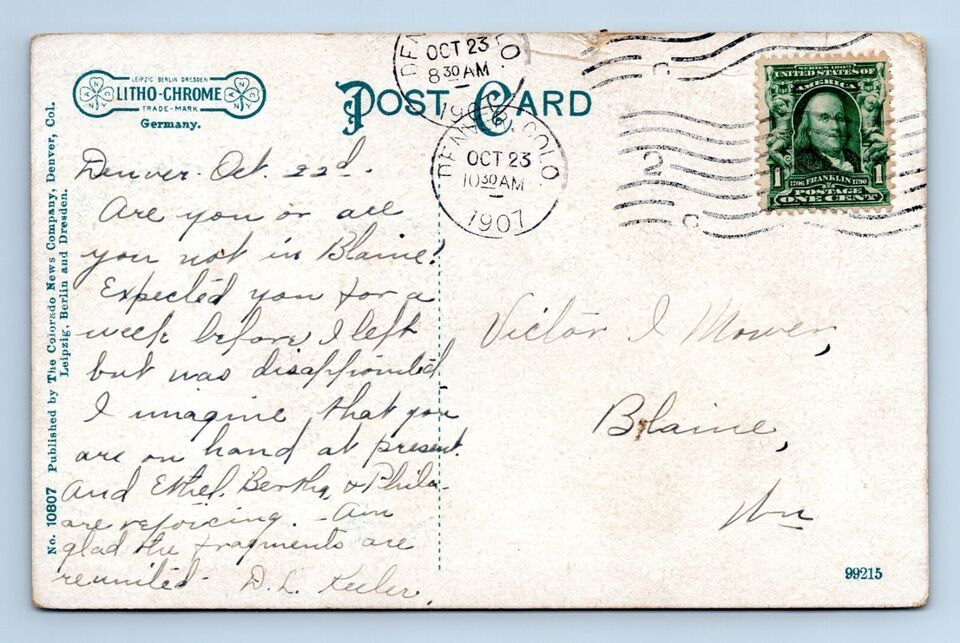 LEIPZIG BERLIN DRESDEN
LITHO-CHROME
TRADE-MARK
Germany.
POST CARD
DENVER, COLO.
OCT 23
8 30 AM
190
DENVER, COLO.
OCT 23
10 30 AM
1907
2
SERIES 1902
UNITED STATES OF
AMERICA
1 1706 FRANKLIN 1790 1
POSTAGE
ONE CENT
No. 10807 Published by The Colorado News Company, Denver, Col.
Leipzig, Berlin and Dresden.
Denver. Oct. 22d.
Are you or all
you not in Blaine?
Expected you for a
week before I left
but was disappointed.
I imagine that you
are on hand at present.
And Ethel, Bertha, & Phila-
are rejoicing. - Am
glad the fragments are
reunited- D. L. Keeler.
Victor I Mower,
Blaine,
Wn
99215